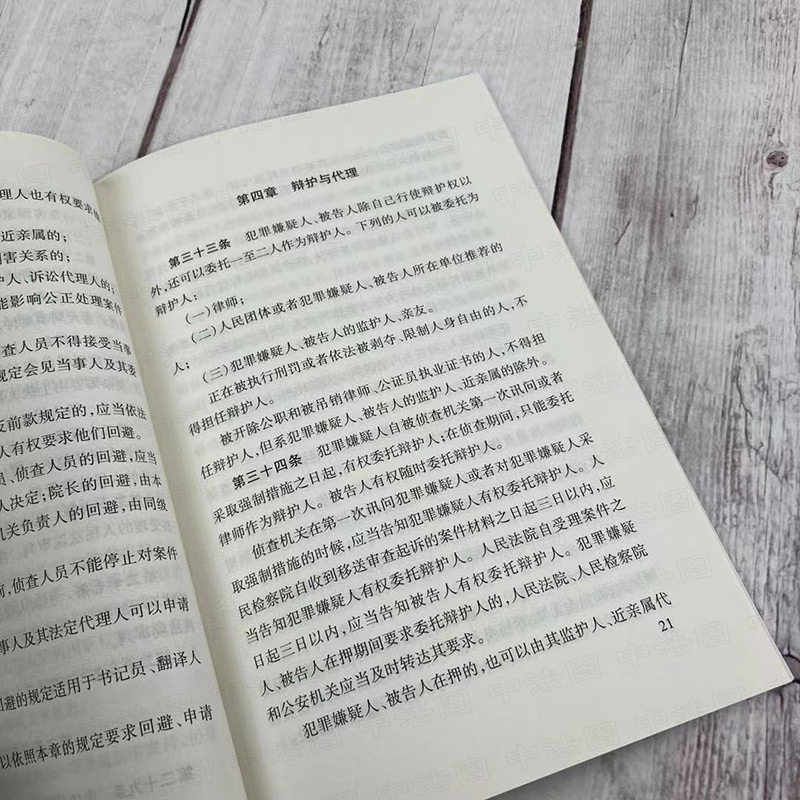 理人也有权要求他
近亲属的；
害关系的；
护人、诉讼代理人的；
能影响公正处理案件
查人员不得接受当事
规定会见当事人及其委
反前款规定的，应当依法
人有权要求他们回避。
、侦查人员的回避，应当
人决定；院长的回避，由本
机关负责人的回避，由同级
前，侦查人员不能停止对案件
事人及其法定代理人可以申请
回避的规定适用于书记员、翻译人
以依照本章的规定要求回避、申请
第四章 辩护与代理
第三十三条 犯罪嫌疑人、被告人除自己行使辩护权以
外，还可以委托一至二人作为辩护人。下列的人可以被委托为
辩护人：
（一）律师；
（二）人民团体或者犯罪嫌疑人、被告人所在单位推荐的
人；
（三）犯罪嫌疑人、被告人的监护人、亲友。
正在被执行刑罚或者依法被剥夺、限制人身自由的人，不
得担任辩护人。
被开除公职和被吊销律师、公证员执业证书的人，不得担
任辩护人，但系犯罪嫌疑人、被告人的监护人、近亲属的除外。
第三十四条 犯罪嫌疑人自被侦查机关第一次讯问或者
采取强制措施之日起，有权委托辩护人；在侦查期间，只能委托
律师作为辩护人。被告人有权随时委托辩护人。
侦查机关在第一次讯问犯罪嫌疑人或者对犯罪嫌疑人采
取强制措施的时候，应当告知犯罪嫌疑人有权委托辩护人。人
民检察院自收到移送审查起诉的案件材料之日起三日以内，应
当告知犯罪嫌疑人有权委托辩护人。人民法院自受理案件之
日起三日以内，应当告知被告人有权委托辩护人。犯罪嫌疑
人、被告人在押期间要求委托辩护人的，人民法院、人民检察院
和公安机关应当及时转达其要求。
犯罪嫌疑人、被告人在押的，也可以由其监护人、近亲属代
21
中法图